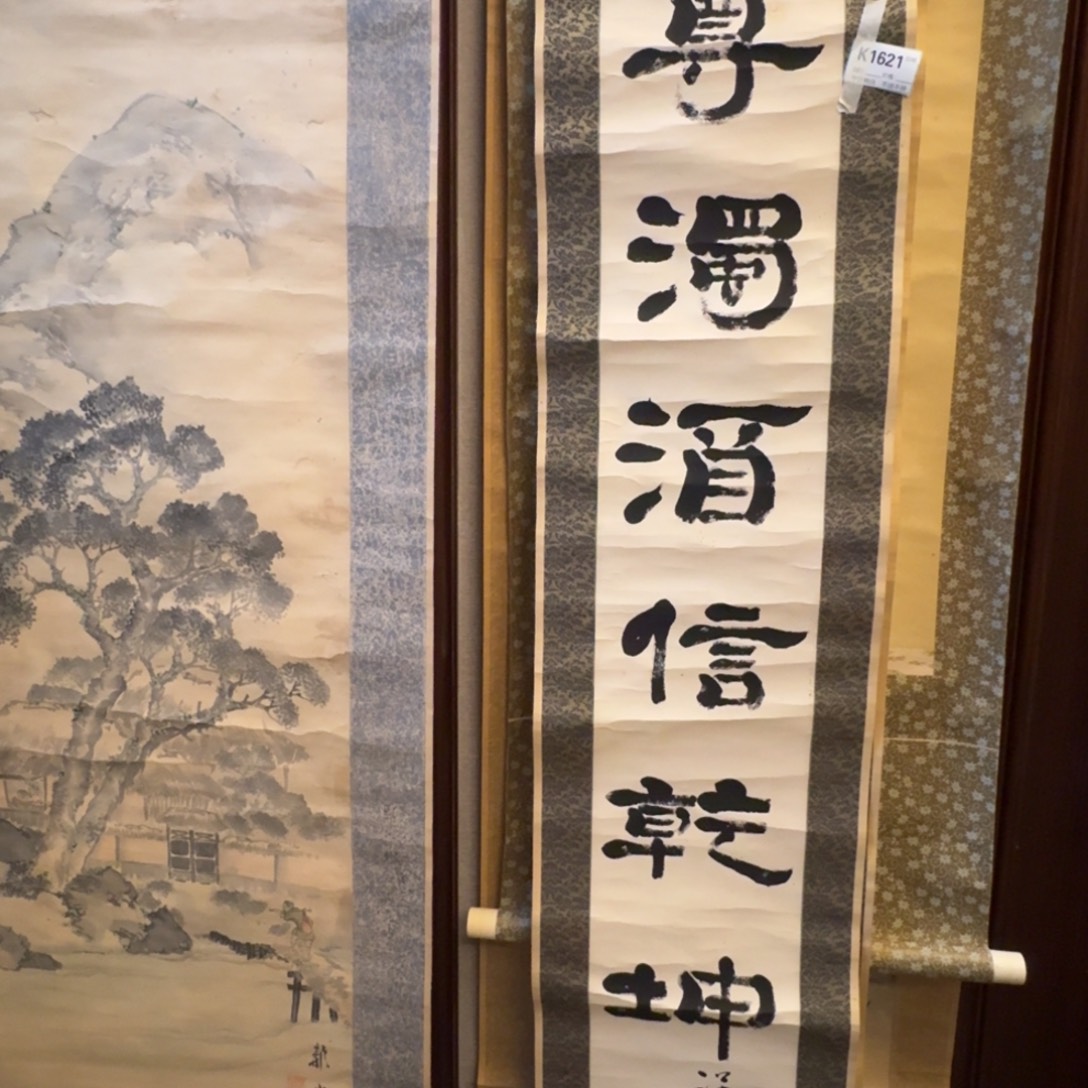 尊濁酒信乾坤
K1621